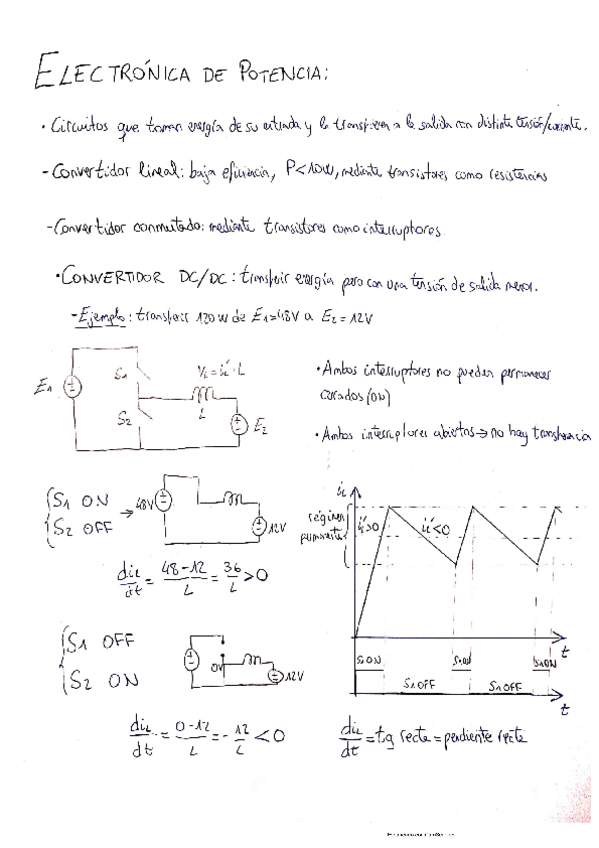 ELECTRÓNICA DE POTENCIA:
· Circuitos que toman energía de su entrada y la transfieren a la salida con distinta tensión/corriente.
- Convertidor lineal: baja eficiencia, P<10W, mediante transistores como resistencias
- Convertidor conmutado: mediante transistores como interruptores
· CONVERTIDOR DC/DC: transferir energía pero con una tensión de salida menor.
- Ejemplo: transferir 120W de E1=48V a E2=12V
E1
S1
S2
VL=iL'·L
L
E2
· Ambos interruptores no pueden permanecer
cerrados (ON)
· Ambos interruptores abiertos → no hay transferencia
S1 ON
S2 OFF
→ 48V
12V
diL/dt = 48-12/L = 36/L >0
iL
régimen
permanente
i'>0
iL'<0
t
S1 ON
S1 OFF
S1 ON
S1 OFF
S1 ON
t
S1 OFF
S2 ON
0V
12V
diL/dt = 0-12/L = -12/L <0
diL/dt = tg recta = pendiente recta